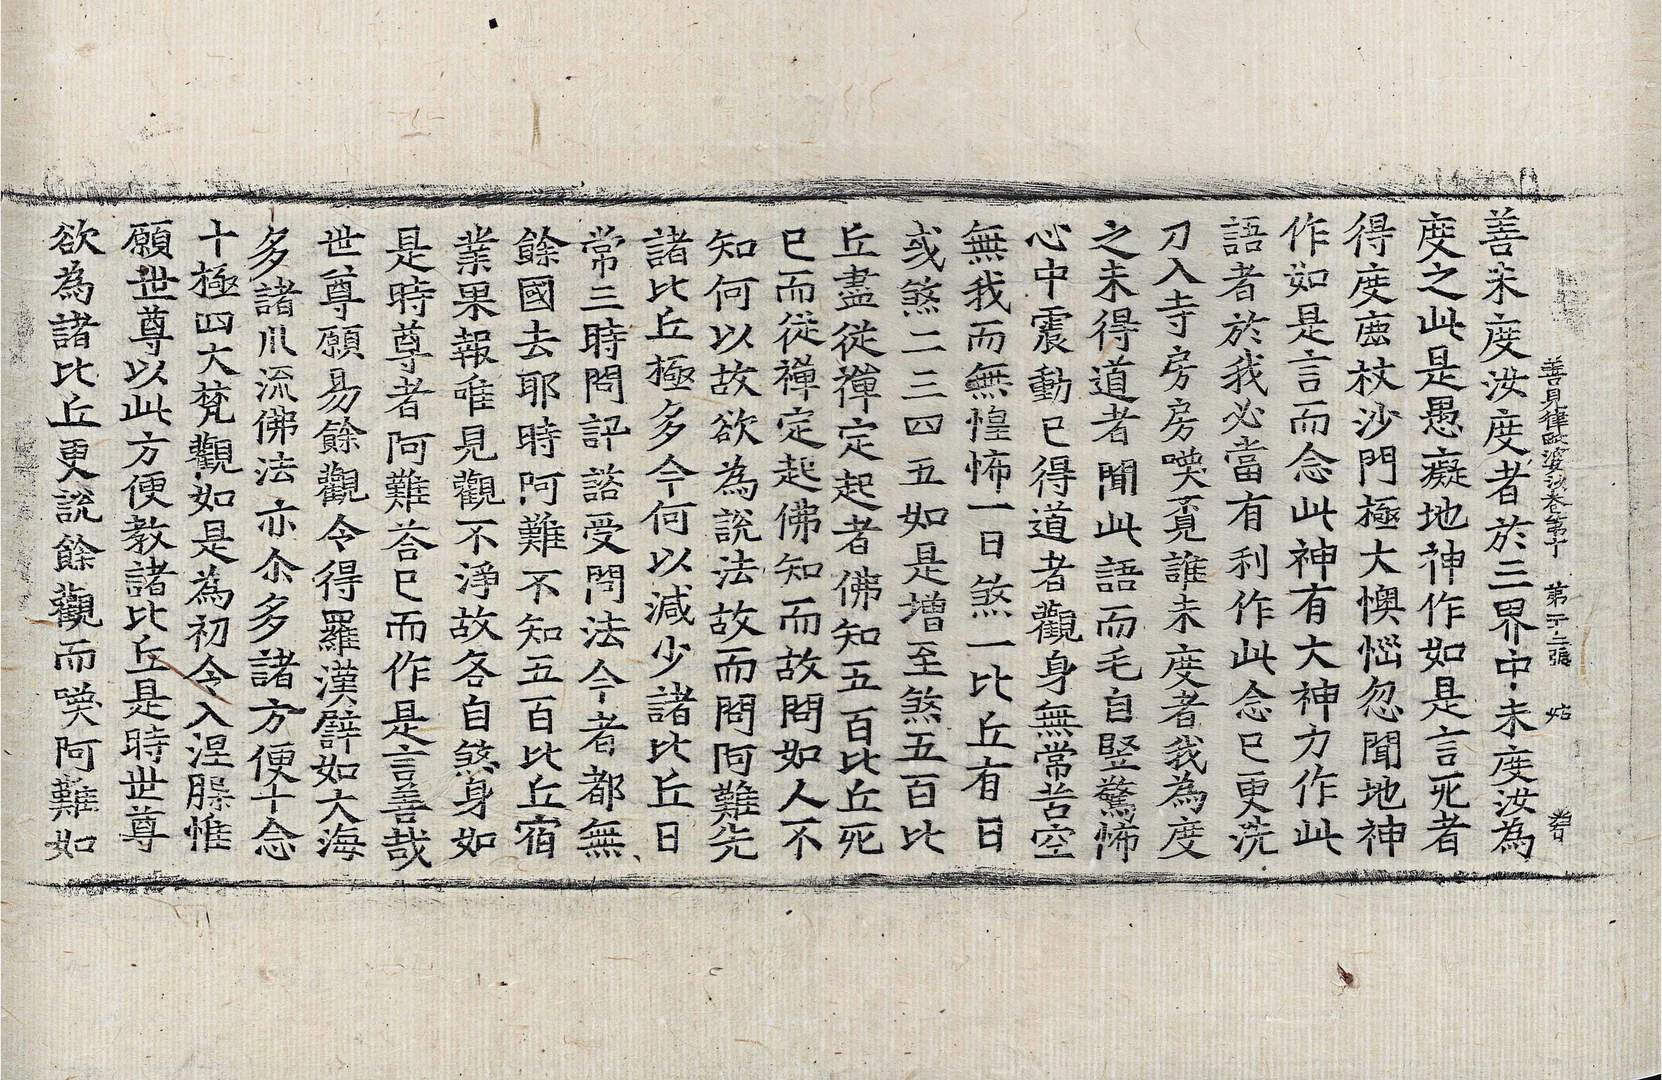 善見律毗婆沙卷第十 第二十三張 姑
善未度汝度者於三界中未度汝為
度之此是愚癡地神作如是言死者
得度鹿杖沙門極大懊惱忽聞地神
作如是言而念此神有大神力作此
語者於我必當有利作此念已更洗
刀入寺房房喚覓誰未度者我為度
之未得道者聞此語而毛自竪驚怖
心中震動已得道者觀身無常苦空
無我而無惶怖一日煞一比丘有日
或煞二三四五如是增至煞五百比
丘盡從禪定起者佛知五百比丘死
已而從禪定起佛知而故問如人不
知何以故欲為說法故而問阿難先
諸比丘極多今何以減少諸比丘日
常三時問評諮受問法今者都無
餘國去耶時阿難不知五百比丘宿
業果報唯見觀不淨故各自煞身如
是時尊者阿難荅已而作是言善哉
世尊願易餘觀令得羅漢譬如大海
多諸川流佛法亦尒多諸方便十念
十極四大梵觀如是為初令入涅槃惟
願世尊以此方便教諸比丘是時世尊
欲為諸比丘更說餘觀而喚阿難如